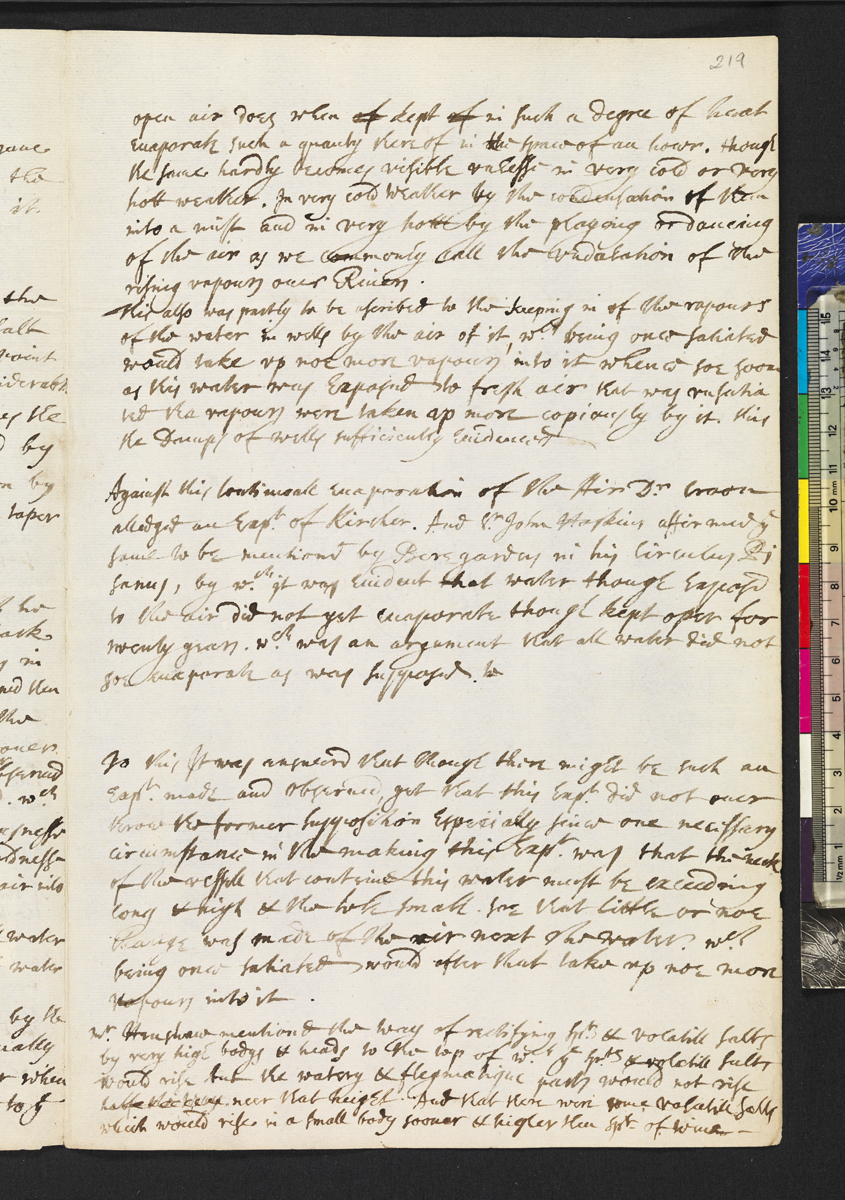 219
open air does when of kept of in such a degree of heat
Euaporate such a quantity thereof in the space of an hower. though
the same hardly becomes visible vnlesse in very cold or very
hott weather. In very cold weather by the condensation of them
into a mist and in very hott by the playing or dancing
of the air as we commonly call the vndulation of the
rising vapours ouer Riuers.
This also was partly to be ascribed to the keeping in of the vapours
of the water in wells by the air of it, wch. being once satiated
would take vp noe more vapours into it whence soe soon
as this water was Exposed to fresh aer that was vnsatia
ted the vapours were taken up more copiously by it. this
the Damps of wells sufficiently Euidenced
Against this continuall euaporation of the Air Dr. Croon
alledged an Expt. of Kircher. And Sr. John Hoskins affirmed ye
same to be mentiond by Beregardus in his Circulus Pi
sanus, by wch. it was Euident that water though Exposd
to the air did not yet euaporate though kept open for
twenty years. wch. was an argument that all water did not
soe euaporate as was supposed. to
To this It was answerd that though there might be such an
Expt. made and obserued yet that this Expt. did not ouer
throw the former supposition Especially since one necessary
circumstance in the making this Expt. was that the neck
of the vessell that containd this water must be exceeding
long & high & the hole small. soe that little or noe
change was made of the air next the water. wch
being once satiated would after that take up noe more
vapours into it.
Mr. Henshaw mentiond the way of rectifying spts & volatill salts
by very high bodys & heads to the top of wch. ye spts & volatill salts
would rise but the watery & flegmatique parts would not rise
neer that height. And that there were some volatill salts
which would rise in a small body sooner & higher then spt. of wine
it
the
salt
point
by
taper
in
the
water
water
by the
when